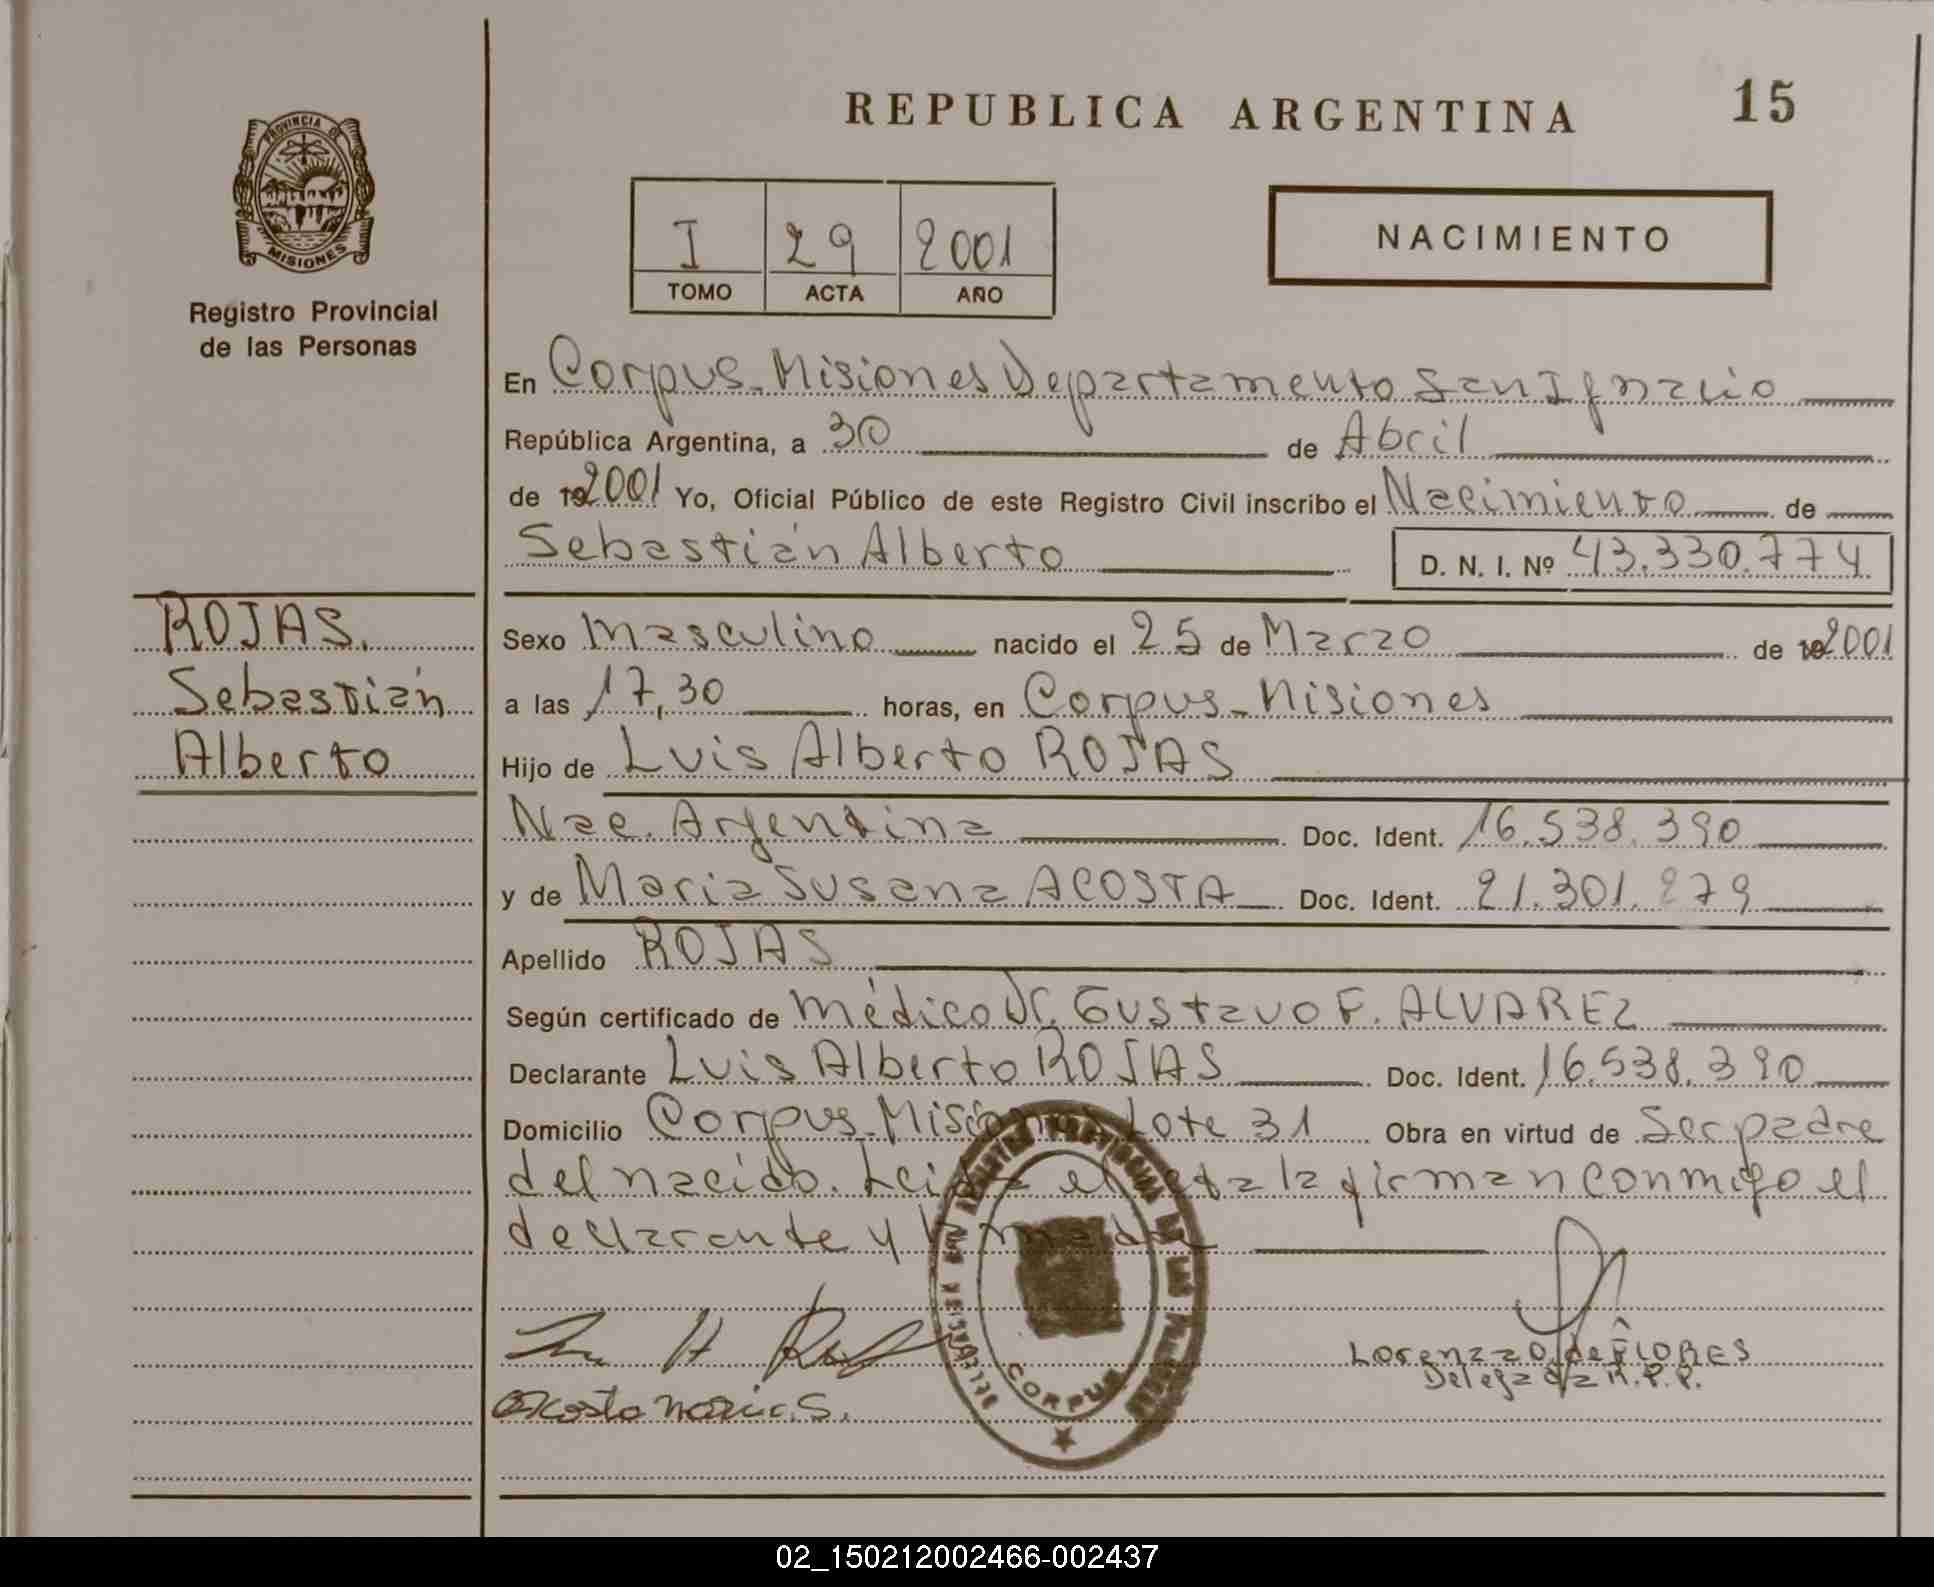 REPUBLICA ARGENTINA 15
PROVINCIA DE
MISIONES
Registro Provincial
de las Personas
I 29 2001
TOMO ACTA AÑO
NACIMIENTO
En Corpus-Misiones Departamento San Ignacio
República Argentina, a 30 de Abril
de 19 2001 Yo, Oficial Público de este Registro Civil inscribo el Nacimiento de
Sebastián Alberto D. N. I. Nº 43.330.774
ROJAS.
Sebastián
Alberto
Sexo Masculino nacido el 25 de Marzo de 19 2001
a las 17,30 horas, en Corpus-Misiones
Hijo de Luis Alberto ROJAS
Nac. Argentina Doc. Ident. 16.538.390
y de Maria Susana ACOSTA Doc. Ident. 21.301.279
Apellido ROJAS
Según certificado de Médico Dr. Gustavo F. ALVAREZ
Declarante Luis Alberto ROJAS Doc. Ident. 16.538.390
Domicilio Corpus-Misiones Lote 31 Obra en virtud de Ser padre
del nacido. Leida el acta la firman conmigo el
declarante y la madre
CORPUS
Acosta Maria S.
Lorenza O. de FLORES
Delegada R.P.P.
02_150212002466-002437